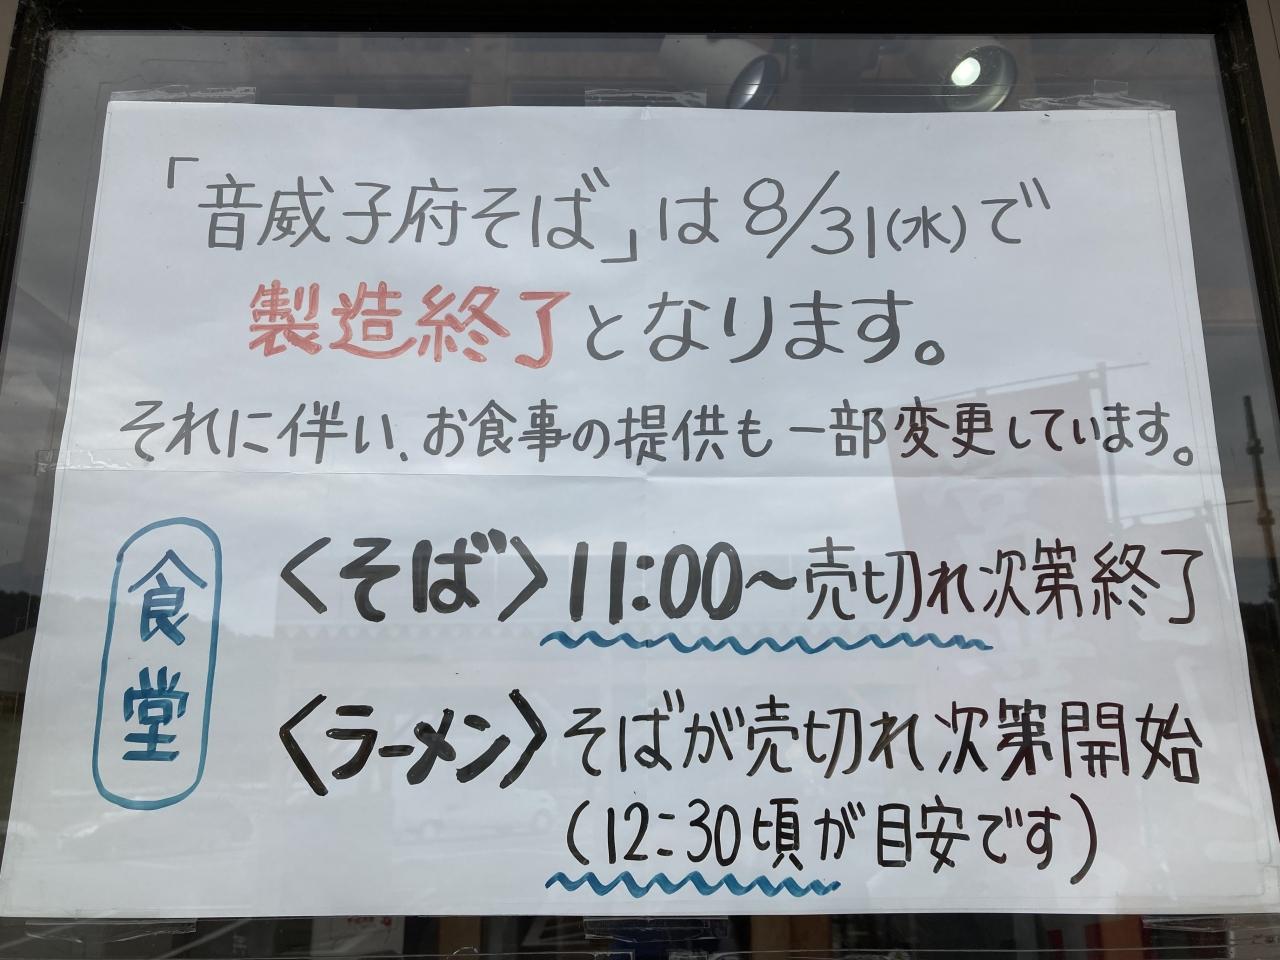 「音威子府そば」は8/31(水)で
製造終了となります。
それに伴い、お食事の提供も一部変更しています。
食堂
〈そば〉11:00〜売切れ次第終了
〈ラーメン〉そばが売切れ次第開始
(12:30頃が目安です)